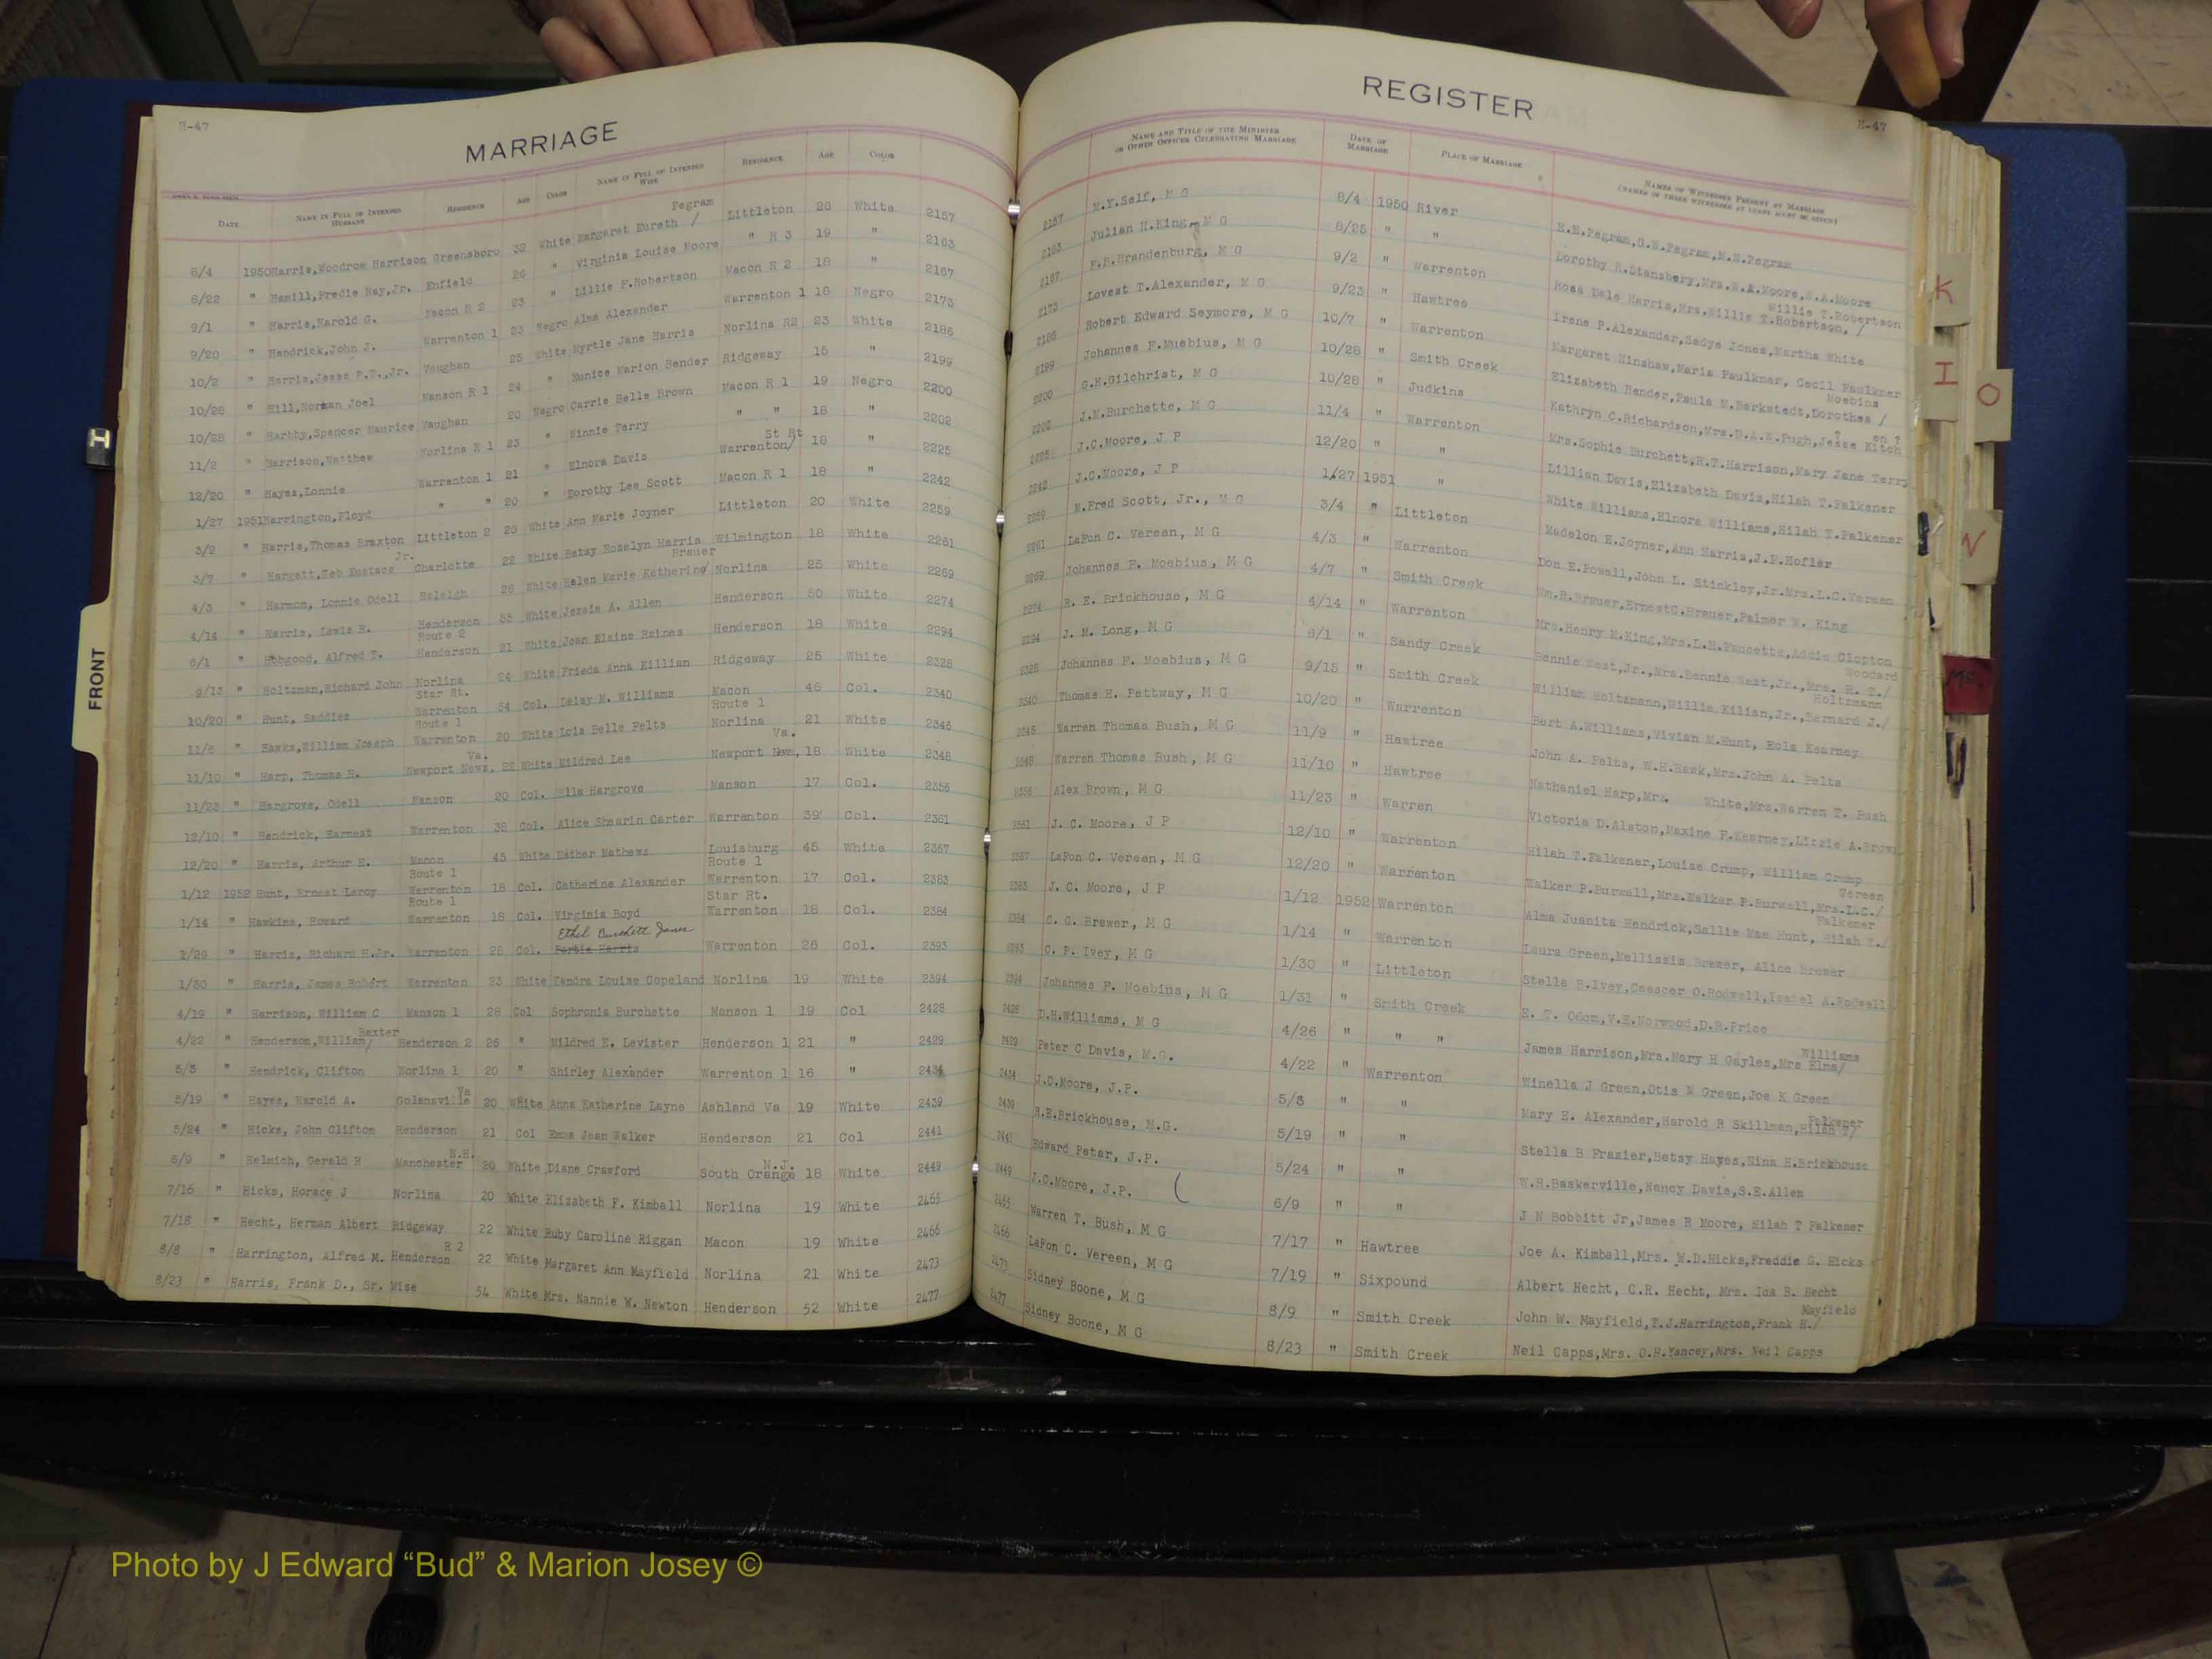 H-47
MARRIAGE
DATE NAME IN FULL OF INTENDED HUSBAND RESIDENCE AGE COLOR NAME IN FULL OF INTENDED WIFE RESIDENCE AGE COLOR
8/4 1950 Harris,Woodrow Harrison Greensboro 32 White Margaret Eureth / Pegram Littleton 26 White 2157
8/22 " Hamill,Fredie Ray,Jr. Enfield 26 " Virginia Louise Moore " R 3 19 " 2163
9/1 " Harris,Harold G. Macon R 2 23 " Lillie F.Robertson Macon R 2 18 " 2167
9/20 " Hendrick,John J. Warrenton 1 23 Negro Alma Alexander Warrenton 1 18 Negro 2173
10/2 " Harris,Jesse P.T.,Jr. Vaughan 25 White Myrtle Jane Harris Norlina R2 23 White 2186
10/28 " Hill,Norman Joel Manson R 1 24 " Eunice Marion Bender Ridgeway 15 " 2199
10/28 " Harbby,Spencer Maurice Vaughan 20 Negro Carrie Belle Brown Macon R 1 19 Negro 2200
11/2 " Harrison,Matthew Norlina R 1 23 " Winnie Terry " " 18 " 2202
12/20 " Hayes,Lonnie Warrenton 1 21 " Elnora Davis Warrenton/ St Rt 18 " 2225
1/27 1951 Harrington,Floyd " " 20 " Dorothy Lee Scott Macon R 1 18 " 2242
3/2 " Harris,Thomas Braxton Jr. Littleton 2 20 White Ann Marie Joyner Littleton 20 White 2259
3/7 " Hargett,Zeb Eustace Charlotte 22 White Betsy Roselyn Harris Wilmington 18 White 2261
4/3 " Harmon, Lonnie Odell Raleigh 26 White Helen Marie Katherine/ Brauer Norlina 25 White 2269
4/14 " Harris, Lewis R. Henderson Route 2 55 White Jessie A. Allen Henderson 50 White 2274
6/1 " Hobgood, Alfred T. Henderson 21 White Jean Elaine Raines Henderson 18 White 2294
9/13 " Holtzman,Richard John Norlina Star Rt. 24 White Frieda Anna Killian Ridgeway 25 White 2328
10/20 " Hunt, Saddies Warrenton Route 1 54 Col. Daisy M. Williams Macon Route 1 46 Col. 2340
11/6 " Hawks,William Joseph Warrenton 20 White Lois Belle Felts Norlina 21 White 2346
11/10 " Harp, Thomas H. Newport News, Va. 22 White Mildred Lee Newport News, Va. 18 White 2348
11/23 " Hargrove, Odell Manson 20 Col. Ella Hargrove Manson 17 Col. 2356
12/10 " Hendrick, Earnest Warrenton 38 Col. Alice Shearin Carter Warrenton 39 Col. 2361
12/20 " Harris, Arthur E. Macon Route 1 45 White Esther Mathews Louisburg Route 1 45 White 2367
1/12 1952 Hunt, Ernest Leroy Warrenton Route 1 18 Col. Catherine Alexander Warrenton Star Rt. 17 Col. 2383
1/14 " Hawkins, Howard Warrenton 18 Col. Virginia Boyd Warrenton 18 Col. 2384
1/29 " Harris, Richard H.Jr. Warrenton 28 Col. Ethel Burchett Jones Portia Harris Warrenton 26 Col. 2393
1/30 " Harris, James Robert Warrenton 23 White Zandra Louise Copeland Norlina 19 White 2394
4/19 " Harrison, William C Manson 1 28 Col Sophronia Burchette Manson 1 19 Col 2428
4/22 " Henderson,William/ Baxter Henderson 2 26 " Mildred E. Levister Henderson 1 21 " 2429
5/3 " Hendrick, Clifton Norlina 1 20 " Shirley Alexander Warrenton 1 16 " 2434
5/19 " Hayes, Harold A. Golansville Va 20 White Anna Katherine Layne Ashland Va 19 White 2439
5/24 " Hicks, John Clifton Henderson 21 Col Emma Jean Walker Henderson 21 Col 2441
6/9 " Helmich, Gerald R Manchester N.H. 20 White Diane Crawford South Orange N.J. 18 White 2449
7/16 " Hicks, Horace J Norlina 20 White Elizabeth F. Kimball Norlina 19 White 2465
7/18 " Hecht, Herman Albert Ridgeway 22 White Ruby Caroline Riggan Macon 19 White 2466
8/8 " Harrington, Alfred M. Henderson R 2 22 White Margaret Ann Mayfield Norlina 21 White 2473
8/23 " Harris, Frank D., Sr. Wise 54 White Mrs. Nannie W. Newton Henderson 52 White 2477
REGISTER
H-47
NAME AND TITLE OF THE MINISTER OR OTHER OFFICER CELEBRATING MARRIAGE DATE OF MARRIAGE PLACE OF MARRIAGE NAMES OF WITNESSES PRESENT AT MARRIAGE (NAMES OF THREE WITNESSES AT LEAST MUST BE GIVEN)
2157 M.Y.Self, M G 8/4 1950 River E.E.Pegram,O.W.Pegram,M.N.Pegram
2163 Julian H.King, M G 8/25 " " Dorothy R.Stansbery,Mrs.W.A.Moore,W.A.Moore
2167 F.B.Brandenburg, M G 9/2 " Warrenton Rosa Dale Harris,Mrs.Willie T.Robertson, / Willie T.Robertson
2173 Lovest T.Alexander, M G 9/23 " Hawtree Irene P.Alexander,Sadye Jones,Martha White
2186 Robert Edward Seymore, M G 10/7 " Warrenton Margaret Hinshaw,Maria Faulkner, Cecil Faulkner
2199 Johannes F.Muebius, M G 10/28 " Smith Creek Elizabeth Bender,Paula M.Barkstedt,Dorothea / Moebins
2200 G.H.Gilchrist, M G 10/28 " Judkins Kathryn C.Richardson,Mrs.B.A.W.Pugh,Jesse Kitch en ?
2202 J.M.Burchette, M G 11/4 " Warrenton Mrs.Sophie Burchett,R.T.Harrison,Mary Jane Terry
2225 J.C.Moore, J P 12/20 " " Lillian Davis,Elizabeth Davis,Hilah T.Falkener
2242 J.C.Moore, J P 1/27 1951 " White Williams,Elnora Williams,Hilah T.Falkener
2259 M.Fred Scott, Jr., M G 3/4 " Littleton Madelon E.Joyner,Ann Harris,J.P.Hofler
2261 LaFon C. Vereen, M G 4/3 " Warrenton Don E.Powell,John L. Stickley,Jr.Mrs.L.C.Vereen
2269 Johannes F. Moebius, M G 4/7 " Smith Creek Wm.B.Brauer,ErnestC.Brauer,Palmer W. King
2274 R. E. Brickhouse, M G 4/14 " Warrenton Mrs.Henry M.King,Mrs.L.H.Faucette,Addie Clopton
2294 J. M. Long, M G 6/1 " Sandy Creek Bennie West,Jr.,Mrs.Bennie West,Jr.,Mrs. R. T./ Woodard
2328 Johannes F. Moebius, M G 9/15 " Smith Creek William Holtzmann,Willie Kilian,Jr.,Bernard J./ Holtzmann
2340 Thomas H. Pettway, M G 10/20 " Warrenton Bert A.Williams,Vivian M.Hunt, Eola Kearney
2346 Warren Thomas Bush, M G 11/9 " Hawtree John A. Felts, W.H.Hawk,Mrs.John A. Felts
2348 Warren Thomas Bush, M G 11/10 " Hawtree Nathaniel Harp,Mrs. White,Mrs.Warren T. Bush
2356 Alex Brown, M G 11/23 " Warren Victoria D.Alston,Maxine F.Kearney,Lizzie A.Brown
2361 J. C. Moore, J P 12/10 " Warrenton Hilah T.Falkener,Louise Crump, William Crump
2367 LaFon C. Vereen, M G 12/20 " Warrenton Walker P.Burwell,Mrs.Walker P.Burwell,Mrs.L.C./ Vereen
2383 J. C. Moore, J P 1/12 1952 Warrenton Alma Juanita Hendrick,Sallie Mae Hunt, Hilah T./ Falkener
2384 C. C. Brewer, M G 1/14 " Warrenton Laura Green,Mellissia Brewer, Alice Brewer
2393 C. P. Ivey, M G 1/30 " Littleton Stella H.Ivey,Caescer O.Rodwell,Isabel A.Rodwell
2394 Johannes F. Moebius, M G 1/31 " Smith Creek E. T. Odom,V.E.Norwood,D.R.Price
2428 D.H.Williams, M G 4/26 " " " James Harrison,Mrs.Mary H Gayles,Mrs Elma/ Williams
2429 Peter C Davis, M.G. 4/22 " Warrenton Winella J Green,Otis M Green,Joe K Green
2434 J.C.Moore, J.P. 5/3 " " Mary E. Alexander,Harold R Skillman,Hilah T/ Falkener
2439 R.E.Brickhouse, M.G. 5/19 " " Stella B Frazier,Betsy Hayes,Nina H.Brickhouse
2441 Edward Petar, J.P. 5/24 " " W.R.Baskerville,Nancy Davis,S.E.Allen
2449 J.C.Moore, J.P. 6/9 " " J N Bobbitt Jr,James R Moore, Hilah T Falkener
2465 Warren T. Bush, M G 7/17 " Hawtree Joe A. Kimball,Mrs. W.D.Hicks,Freddie G. Hicks
2466 LaFon C. Vereen, M G 7/19 " Sixpound Albert Hecht, C.R. Hecht, Mrs. Ida B. Hecht
2473 Sidney Boone, M G 8/9 " Smith Creek John W. Mayfield,T.J.Harrington,Frank H./ Mayfield
2477 Sidney Boone, M G 8/23 " Smith Creek Neil Capps,Mrs. O.H.Yancey,Mrs. Neil Capps
H
FRONT
K
I
O
N
Mc.
Photo by J Edward “Bud” & Marion Josey ©